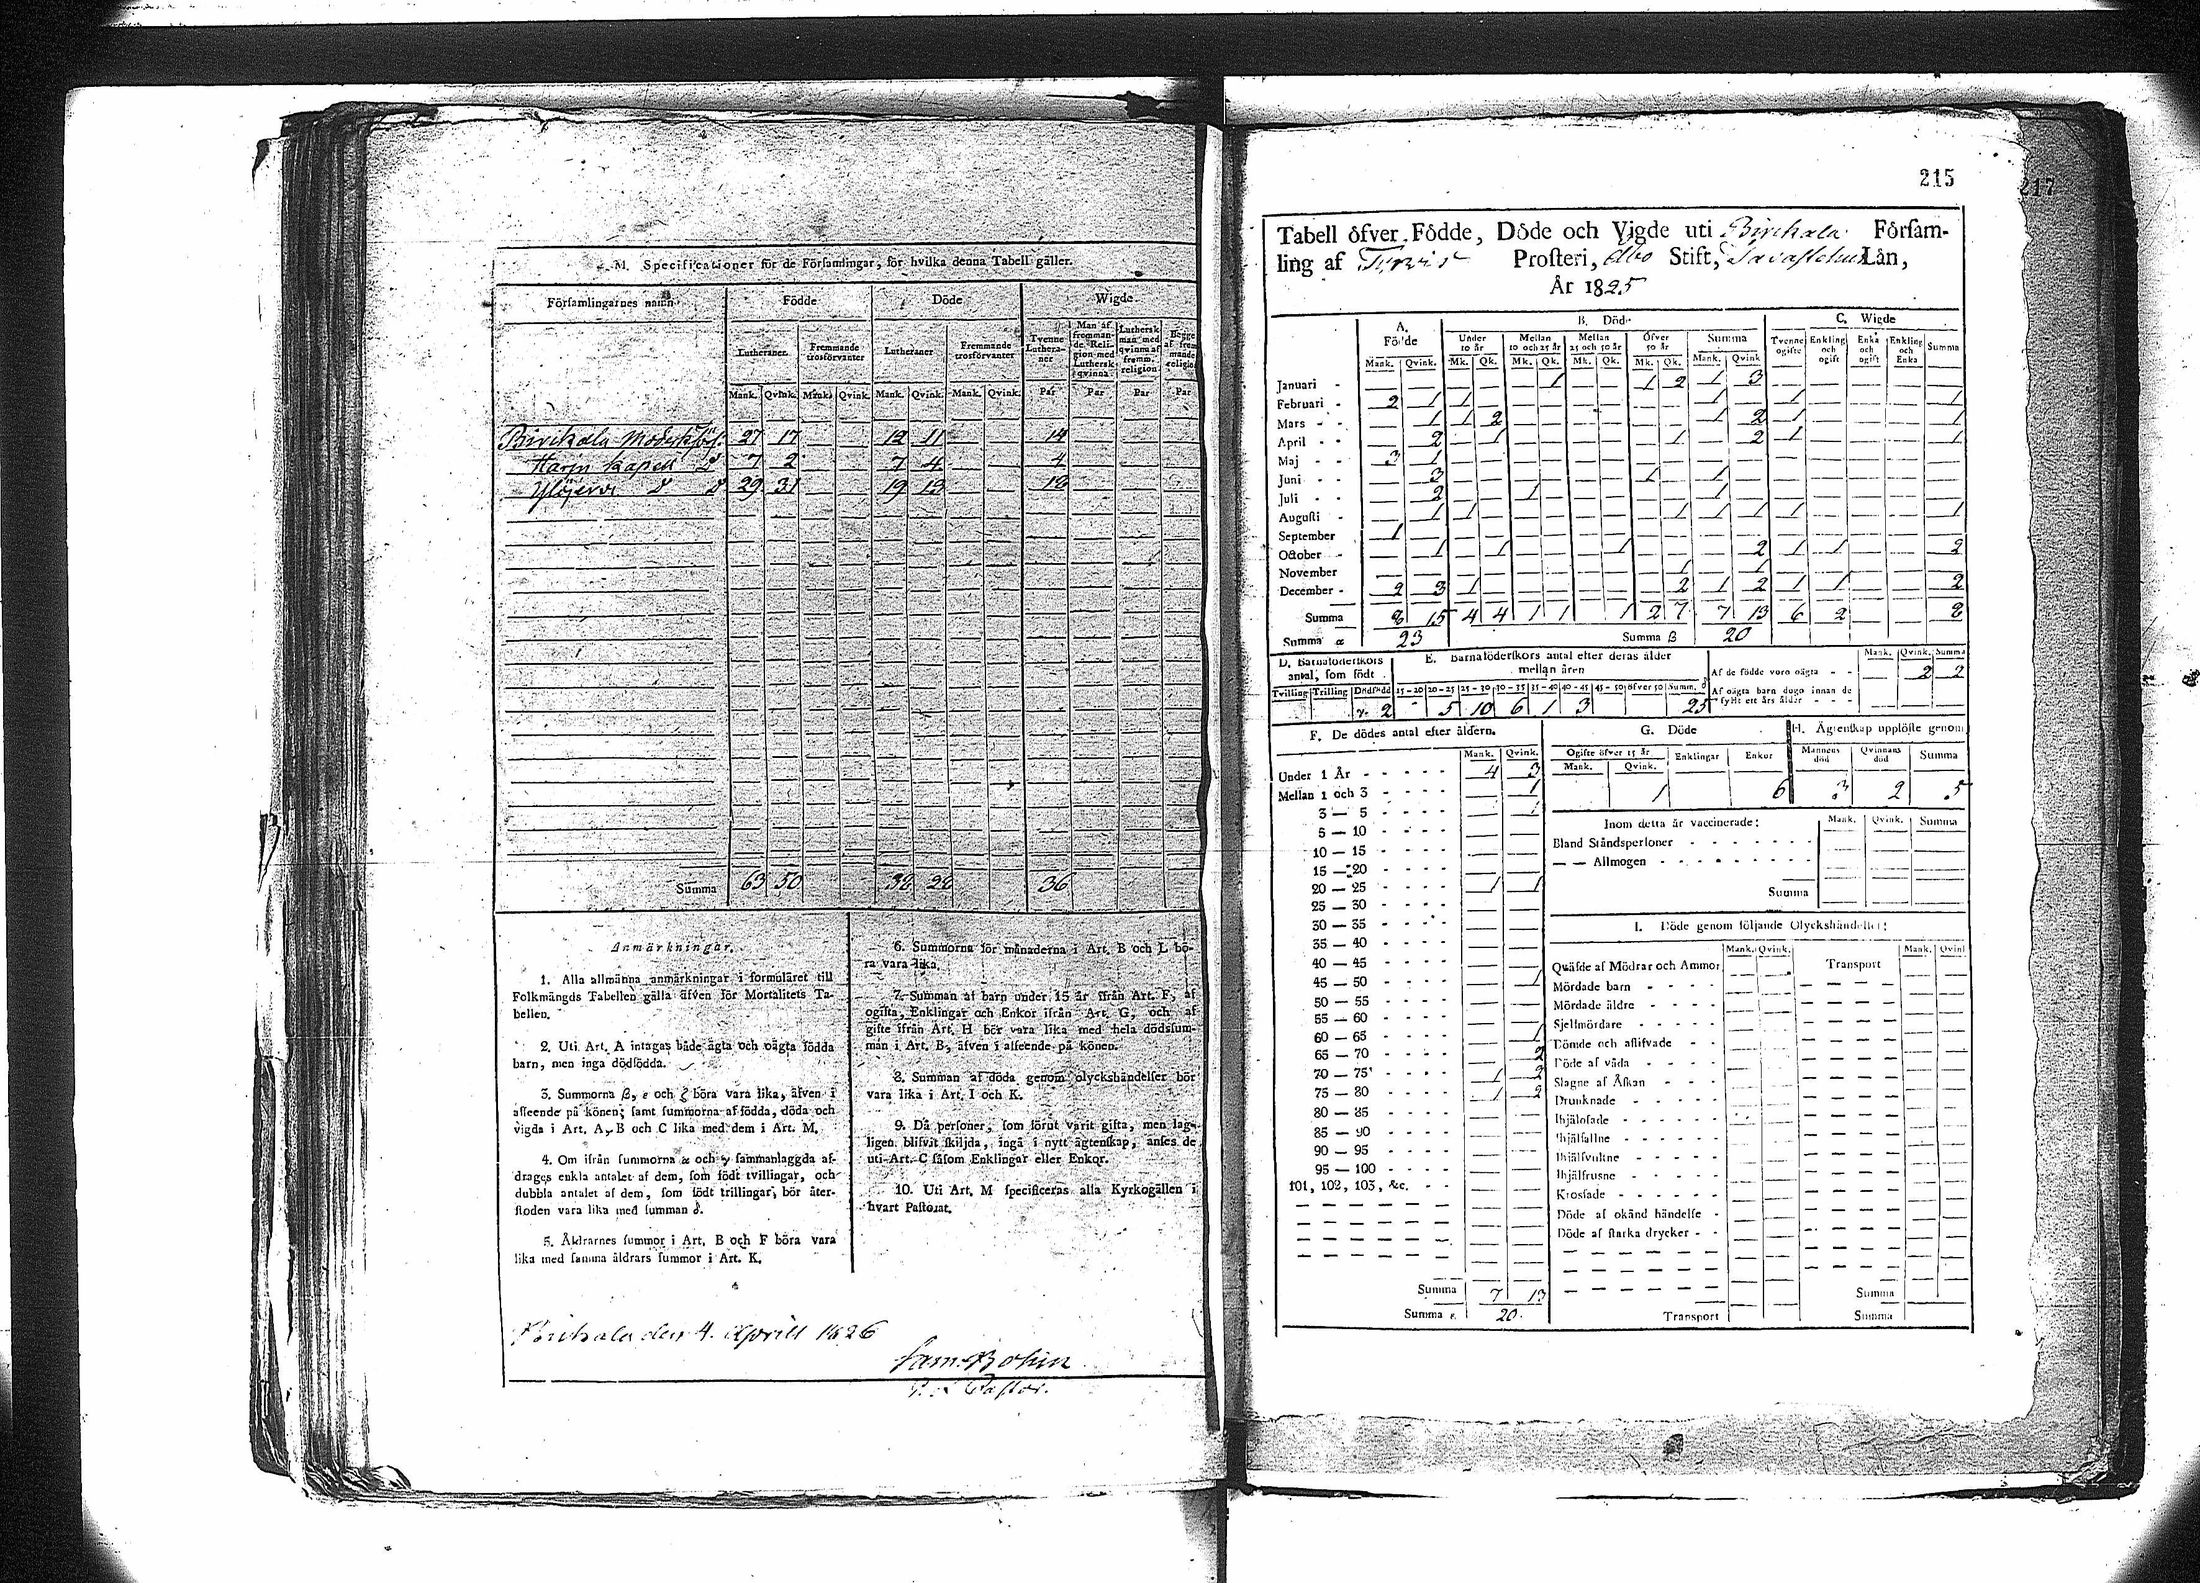 M. Specificationer för de Församlingar, för hvilka denna Tabell gäller.
Församlingarnes namn. Födde Döde Wigde
Lutheraner. Fremmande trosförvanter Lutheraner Fremmande trosförvanter Tvenne Lutheraner Man af fremmande Religion med Luthersk qvinna. Luthersk man med qvinna af fremm. religion.
Mank. Qvink. Mank. Qvink. Mank. Qvink. Mank. Qvink. Par Par Par Par
Birckala 27 17 — — 12 11 — — 14
Harju Kapell D 7 2 — — 7 4 — — 4
Ylöjervi D D 29 31 — — 19 13 — — 18
Summa 63 50 38 28 36
Anmärkningar.
1. Alla allmänna anmärkningar i formuläret till
Folkmängds Tabellen gälla äfven för Mortalitets Ta-
bellen.
2. Uti Art. A intagas både ägta och oägta födda
barn, men inga dödfödda.
3. Summorna β, ε och ζ böra vara lika, äfven i
afseende på könen; samt summorna af födda, döda och
vigda i Art. A, B och C lika med dem i Art. M.
4. Om ifrån summorna α och γ sammanlaggda af-
drages enkla antalet af dem, som födt tvillingar, och
dubbla antalet af dem, som födt trillingar, bör åter-
stoden vara lika med summan δ.
5. Åldrarnes summor i Art. B och F böra vara
lika med samma åldrars summor i Art. K.
6. Summorna för månaderna i Art. B och L bö-
ra vara lika.
7. Summan af barn under 15 år ifrån Art. F, af
ogifta, Enklingar och Enkor ifrån Art. G, och af
gifte ifrån Art. H bör vara lika med hela dödssum-
man i Art. B, äfven i afseende på könen.
8. Summan af döda genom olyckshändelser bör
vara lika i Art. I och K.
9. Då personer, som förut varit gifta, men lag-
ligen blifvit skiljda, ingå i nytt ägtenskap, anses de
uti Art. C såsom Enklingar eller Enkor.
10. Uti Art. M specificeras alla Kyrkogällen i
hvart Pastorat.
Birckala den 4. Aprill 1826
Sam. Bohm
Pastor.
215
217
Tabell öfver Födde, Döde och Vigde uti Birckala Försam-
ling af Tyrvis Prosteri, Åbo Stift, Tavastehus Län,
År 1825
A. Födde B. Döde C. Wigde
Under 10 år Mellan 10 och 25 år Mellan 25 och 50 år Öfver 50 år Summa Tvenne ogifte Enkling och ogift Enka och ogift Enkling och Enka Summa
Mank. Qvink. Mk. Qk. Mk. Qk. Mk. Qk. Mk. Qk. Mank. Qvink
Januari - — — — — — 1 — — 1 2 1 3 — — — — —
Februari - 2 1 1 — — — — — — — 1 — 1 — — — 1
Mars - - — 1 1 2 — — — — — — 1 2 1 — — — 1
April - - — 2 — 1 — — — — — 1 — 2 1 — — — 1
Maj - - 3 1 — — — — — — — — — — — — — — —
Juni - - — 3 — — — — — — 1 — 1 — — — — — —
Juli - - — 2 — — 1 — — — — — 1 — — — — — —
Augusti - — 1 1 — — — — — — 1 1 1 1 — — — 1
September 1 — — — — — — — — — — — — — — — —
October - — 1 — 1 — — — 1 — — — 2 1 1 — — 2
November — — — — — — — — — 1 — 1 — — — — —
December - 2 3 1 — — — — — — 2 1 2 1 1 — — 2
Summa 8 15 4 4 1 1 1 2 7 7 13 6 2 8
Summa α 23 Summa β 20
D. Barnaföderskors antal, som födt
Tvilling Trilling Dödfödd
γ. 2
E. Barnaföderskors antal efter deras ålder
mellan åren
15 — 20 20 — 25 25 — 30 30 — 35 35 — 40 40 — 45 45 — 50 öfver 50 Summ. δ
5 10 6 1 3 25
Mank. Qvink. Summa
Af de födde voro oägta - - 2 2
Af oägta barn dogo innan de
fyllt ett års ålder - - - — — —
F. De dödes antal efter åldern.
Mank. Qvink.
Under 1 År - - - - - 4 3
Mellan 1 och 3 - - - - — 1
3 — 5 - - - - — 1
5 — 10 - - - - — —
10 — 15 - - - - — —
15 — 20 - - - - — —
20 — 25 - - - - 1 1
25 — 30 - - - - — —
30 — 35 - - - - — —
35 — 40 - - - - — —
40 — 45 - - - - — —
45 — 50 - - - - — 1
50 — 55 - - - - — —
55 — 60 - - - - — —
60 — 65 - - - - — 1
65 — 70 - - - - — 2
70 — 75 - - - - 1 2
75 — 80 - - - - 1 2
80 — 85 - - - - — —
85 — 90 - - - - — —
90 — 95 - - - - — —
95 — 100 - - - - — —
101, 102, 103, &c. - - — —
Summa 7 13
Summa ε. 20.
G. Döde
Ogifte öfver 15 år Enklingar Enkor
Mank. Qvink.
1 6
H. Ägtenskap upplöste genom
Mannens död Qvinnans död Summa
3 2 5
Inom detta år vaccinerade: Mank. Qvink. Summa
Bland Ståndspersoner - - - - - - -
— — Allmogen - - - - - - - -
Summa
I. Döde genom följande Olyckshändelser:
Mank. Qvink. Mank. Qvink
Quäfde af Mödrar och Ammor Transport
Mördade barn - - - -
Mördade äldre - - - -
Sjelfmördare - - - - -
Dömde och aflifvade - - -
Döde af våda - - - -
Slagne af Åskan - - -
Drunknade - - - - -
Ihjälfallne - - - - -
Ihjälfrusne - - - - -
Krossade - - - - - -
Döde af okänd händelse -
Döde af starka drycker - -
Summa
Transport Summa